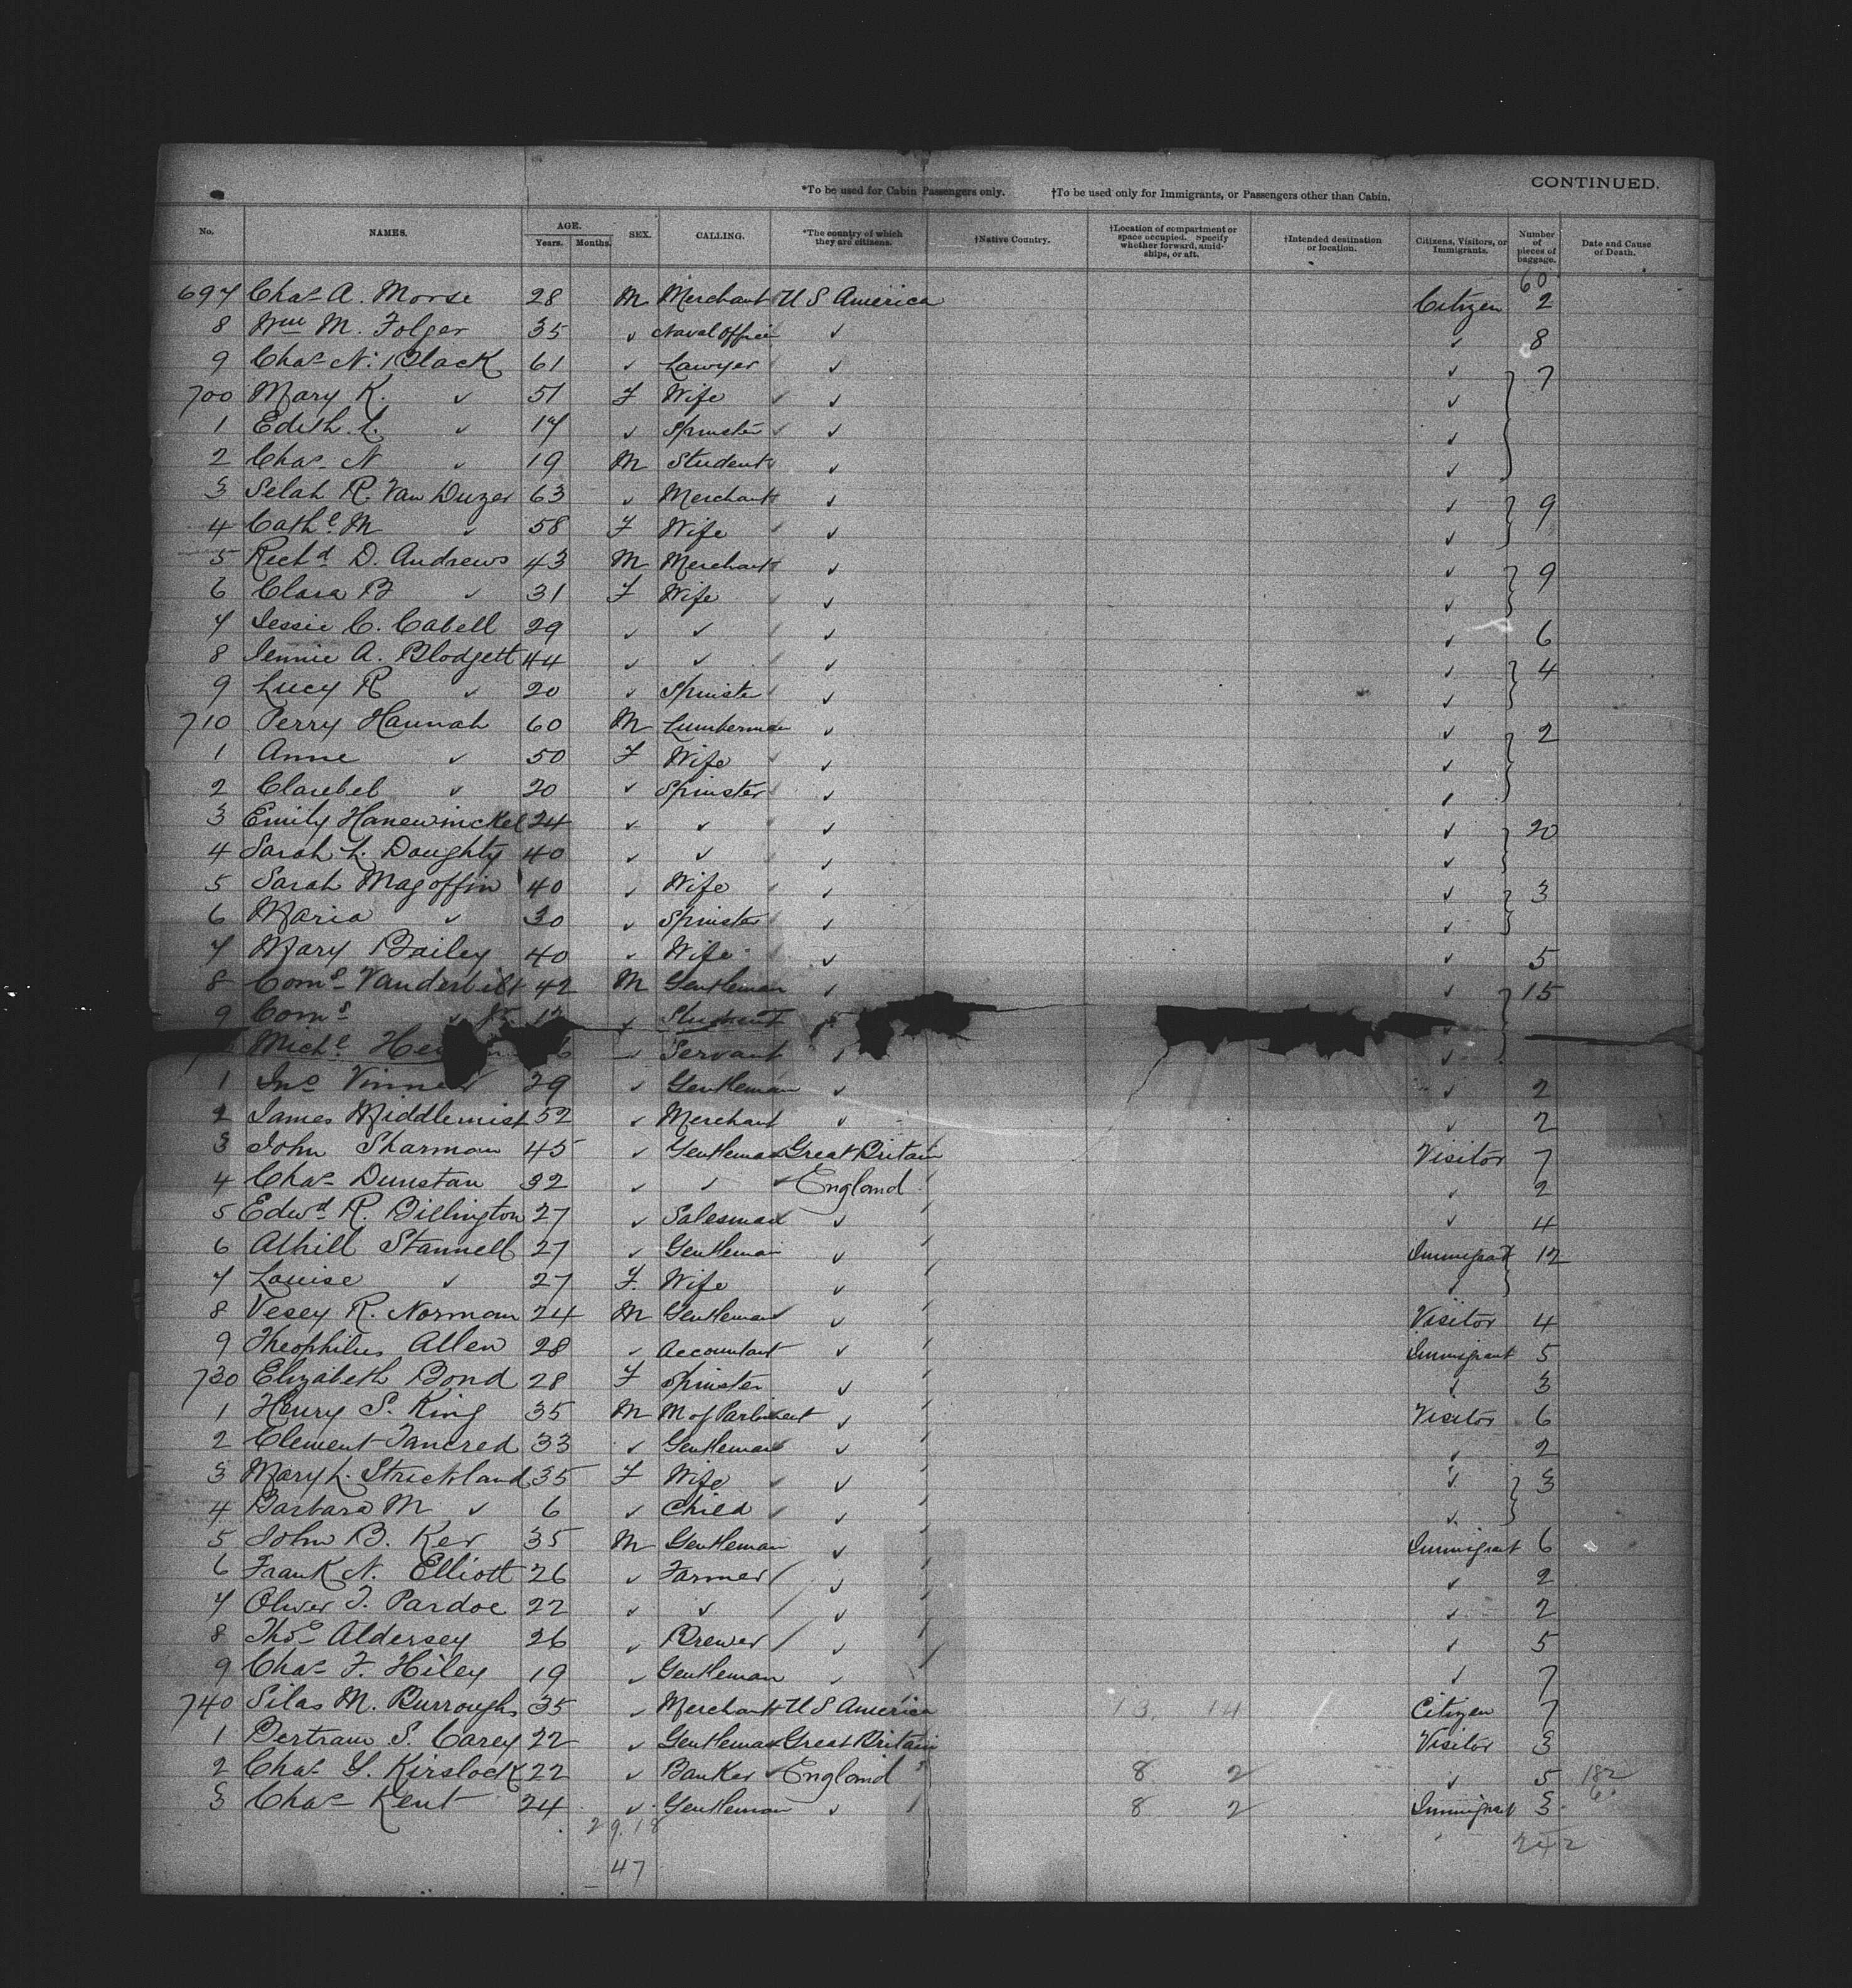 CONTINUED.
*To be used for Cabin Passengers only. †To be used only for Immigrants, or Passengers other than Cabin.
No. NAMES. AGE. Years. Months. SEX. CALLING. *The country of which they are citizens. †Native Country. †Location of compartment or space occupied. Specify whether forward, amid-ships, or aft. †Intended destination or location. Citizens, Visitors, or Immigrants. Number of pieces of baggage. Date and Cause of Death.
60
697 Chas A. Morse 28 M Merchant U S America Citizen 2
8 Wm M. Folger 35 ✓ Naval Officer ✓ ✓ 8
9 Chas N. Black 61 ✓ Lawyer ✓ ✓ 7
700 Mary K. ✓ 51 F Wife ✓ ✓
1 Edith L. ✓ 17 ✓ Spinster ✓ ✓
2 Chas N ✓ 19 M Student ✓ ✓
3 Selah R. Van Duzer 63 ✓ Merchant ✓ ✓ 9
4 Cathe M ✓ 58 F Wife ✓ ✓
5 Richd D. Andrews 43 M Merchant ✓ ✓ 9
6 Clara B ✓ 31 F Wife ✓ ✓
7 Jessie C. Cabell 29 ✓ ✓ ✓ ✓ 6
8 Jennie A. Blodgett 44 ✓ ✓ ✓ ✓ 4
9 Lucy R ✓ 20 ✓ Spinster ✓ ✓
710 Perry Hannah 60 M Lumberman ✓ ✓ 2
1 Anne ✓ 50 F Wife ✓ ✓
2 Clarebel ✓ 20 ✓ Spinster ✓ ✓
3 Emily Hanewinckel 24 ✓ ✓ ✓ ✓ 20
4 Sarah L. Doughty 40 ✓ ✓ ✓ ✓
5 Sarah Magoffin 40 ✓ Wife ✓ ✓ 3
6 Maria ✓ 30 ✓ Spinster ✓ ✓
7 Mary Bailey 40 ✓ Wife ✓ ✓ 5
8 Corns Vanderbilt 42 M Gentleman ✓ ✓ 15
9 Corns ✓ Jr ✓ Student ✓
Miche ✓ Servant ✓ ✓
1 Jno Vinner 29 ✓ Gentleman ✓ ✓ 2
2 James Middlemist 52 ✓ Merchant ✓ ✓ 2
3 John Sharman 45 ✓ Gentleman Great Britain Visitor 7
4 Chas Dunstan 32 ✓ ✓ England ✓ 2
5 Edwd R. Billington 27 ✓ Salesman ✓ ✓ 4
6 Athill Stannell 27 ✓ Gentleman ✓ Immigrant 12
7 Louise ✓ 27 F. Wife ✓ ✓
8 Vesey R. Norman 24 M Gentleman ✓ Visitor 4
9 Theophilus Allen 28 ✓ Accountant ✓ Immigrant 5
730 Elizabeth Bond 28 F Spinster ✓ ✓ 3
1 Henry S. King 35 M M of Parliment ✓ Visitor 6
2 Clement Tancred 33 ✓ Gentleman ✓ ✓ 2
3 Mary L. Strickland 35 F Wife ✓ ✓ 3
4 Barbara M ✓ 6 ✓ Child ✓ ✓
5 John B. Ker 35 M Gentleman ✓ Immigrant 6
6 Frank N. Elliott 26 ✓ Farmer ✓ ✓ 2
7 Oliver T. Pardoe 22 ✓ ✓ ✓ ✓ 2
8 Thos Aldersey 26 ✓ Brewer ✓ ✓ 5
9 Chas F. Hiley 19 ✓ Gentleman ✓ ✓ 7
740 Silas M. Burroughs 35 ✓ Merchant U S America 13. 14 Citizen 7
1 Bertram S. Carey 22 ✓ Gentleman Great Britain Visitor 3
2 Chas Y. Kirslock 22 ✓ Banker England 8 2 ✓ 5 182
3 Chas Kent 24 ✓ Gentleman ✓ 8 2 Immigrant 3 6
29. 18 242
47